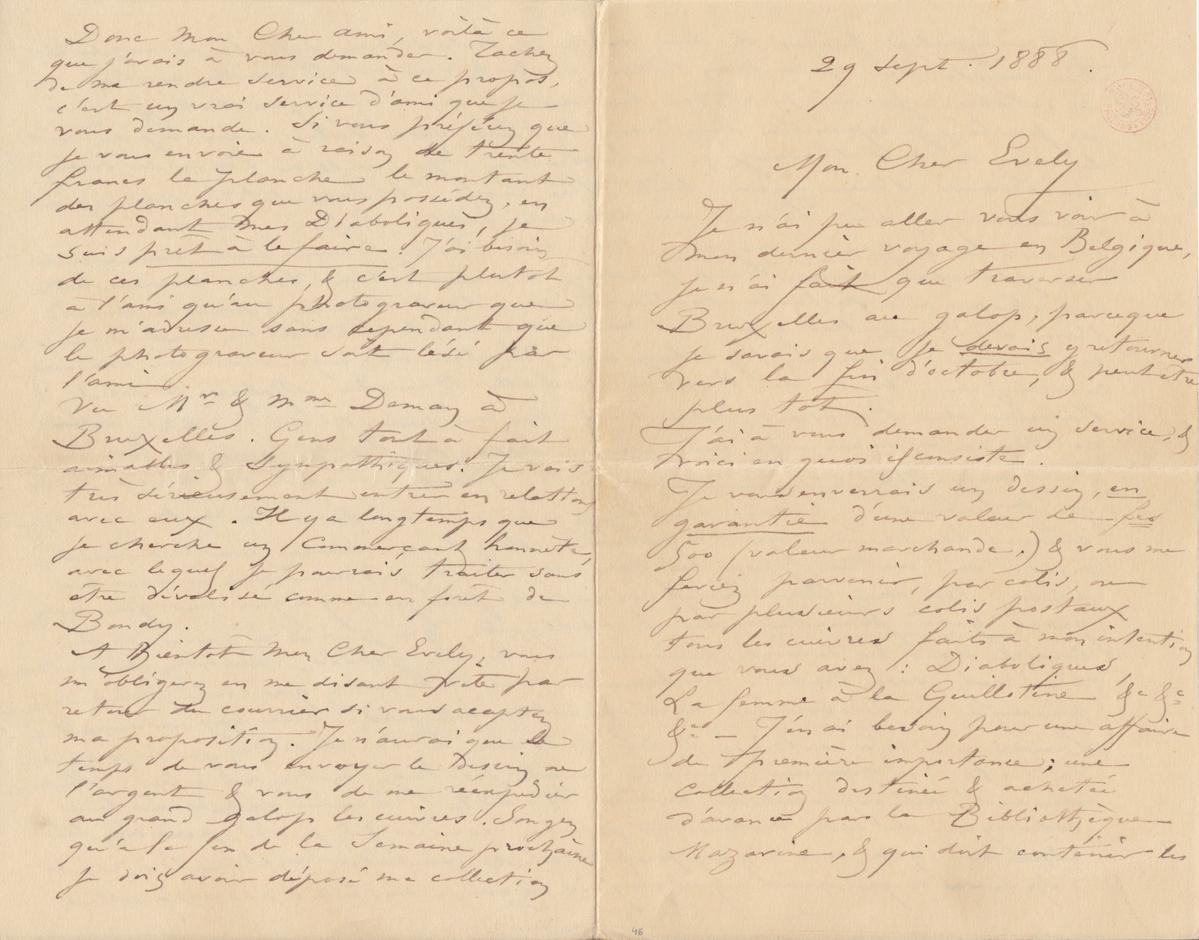 29 Sept. 1888.
Mon Cher Evely
Je n'ai pu aller vous voir à
mon dernier voyage en Belgique,
je n'ai fait que traverser
Bruxelles au galop, parceque
je savais que je devais y retourner
vers la fin d'octobre, & peut être
plus tot.
J'ai à vous demander un service, &
voici en quoi il consiste.
Je vous enverrais un dessin, en
garantie d'une valeur de frs
500 (valeur marchande,) & vous me
feriez parvenir, par colis, ou
par plusieurs colis postaux
tous les cuivres faits à mon intention
que vous avez : Diaboliques,
La femme à la Guillotine &c &c
&c – J'en ai besoin pour une affaire
de première importance ; une
collection destinée & achetée
d'avance par la Bibliothèque
Mazarine, & qui doit contenir les
Donc Mon Cher ami, voilà ce
que j'avais à vous demander. Tachez
de me rendre service à ce propos,
c'est un vrai service d'ami que je
vous demande. Si vous préférez que
je vous envoie à raison de trente
francs la planche le montant
des planches que vous possédez, en
attendant mes Diaboliques, je
suis prêt à le faire. J'ai besoin
de ces planches, & c'est plutot
à l'ami qu'au photograveur que
je m'adresse sans cependant que
le photograveur soit lésé par
l'ami.
Vu Mr & Mme Deman à
Bruxelles. Gens tout à fait
aimables & Sympathiques. Je vais
très sérieusement entrer en relations
avec eux. Il y a longtemps que
je cherche un Commerçant honnête,
avec lequel je pourrais traiter sans
etre dévalisé comme en forêt de
Bondy.
A Bientôt Mon Cher Evely, vous
m'obligerez en me disant vite par
retour du courrier si vous acceptez
ma proposition. Je n'aurai que le
temps de vous envoyer le Dessin ou
l'argent & vous de me réexpédier
au grand galop les cuivres. Songez
qu'à la fin de la Semaine prochaine
je dois avoir déposé ma collection
46